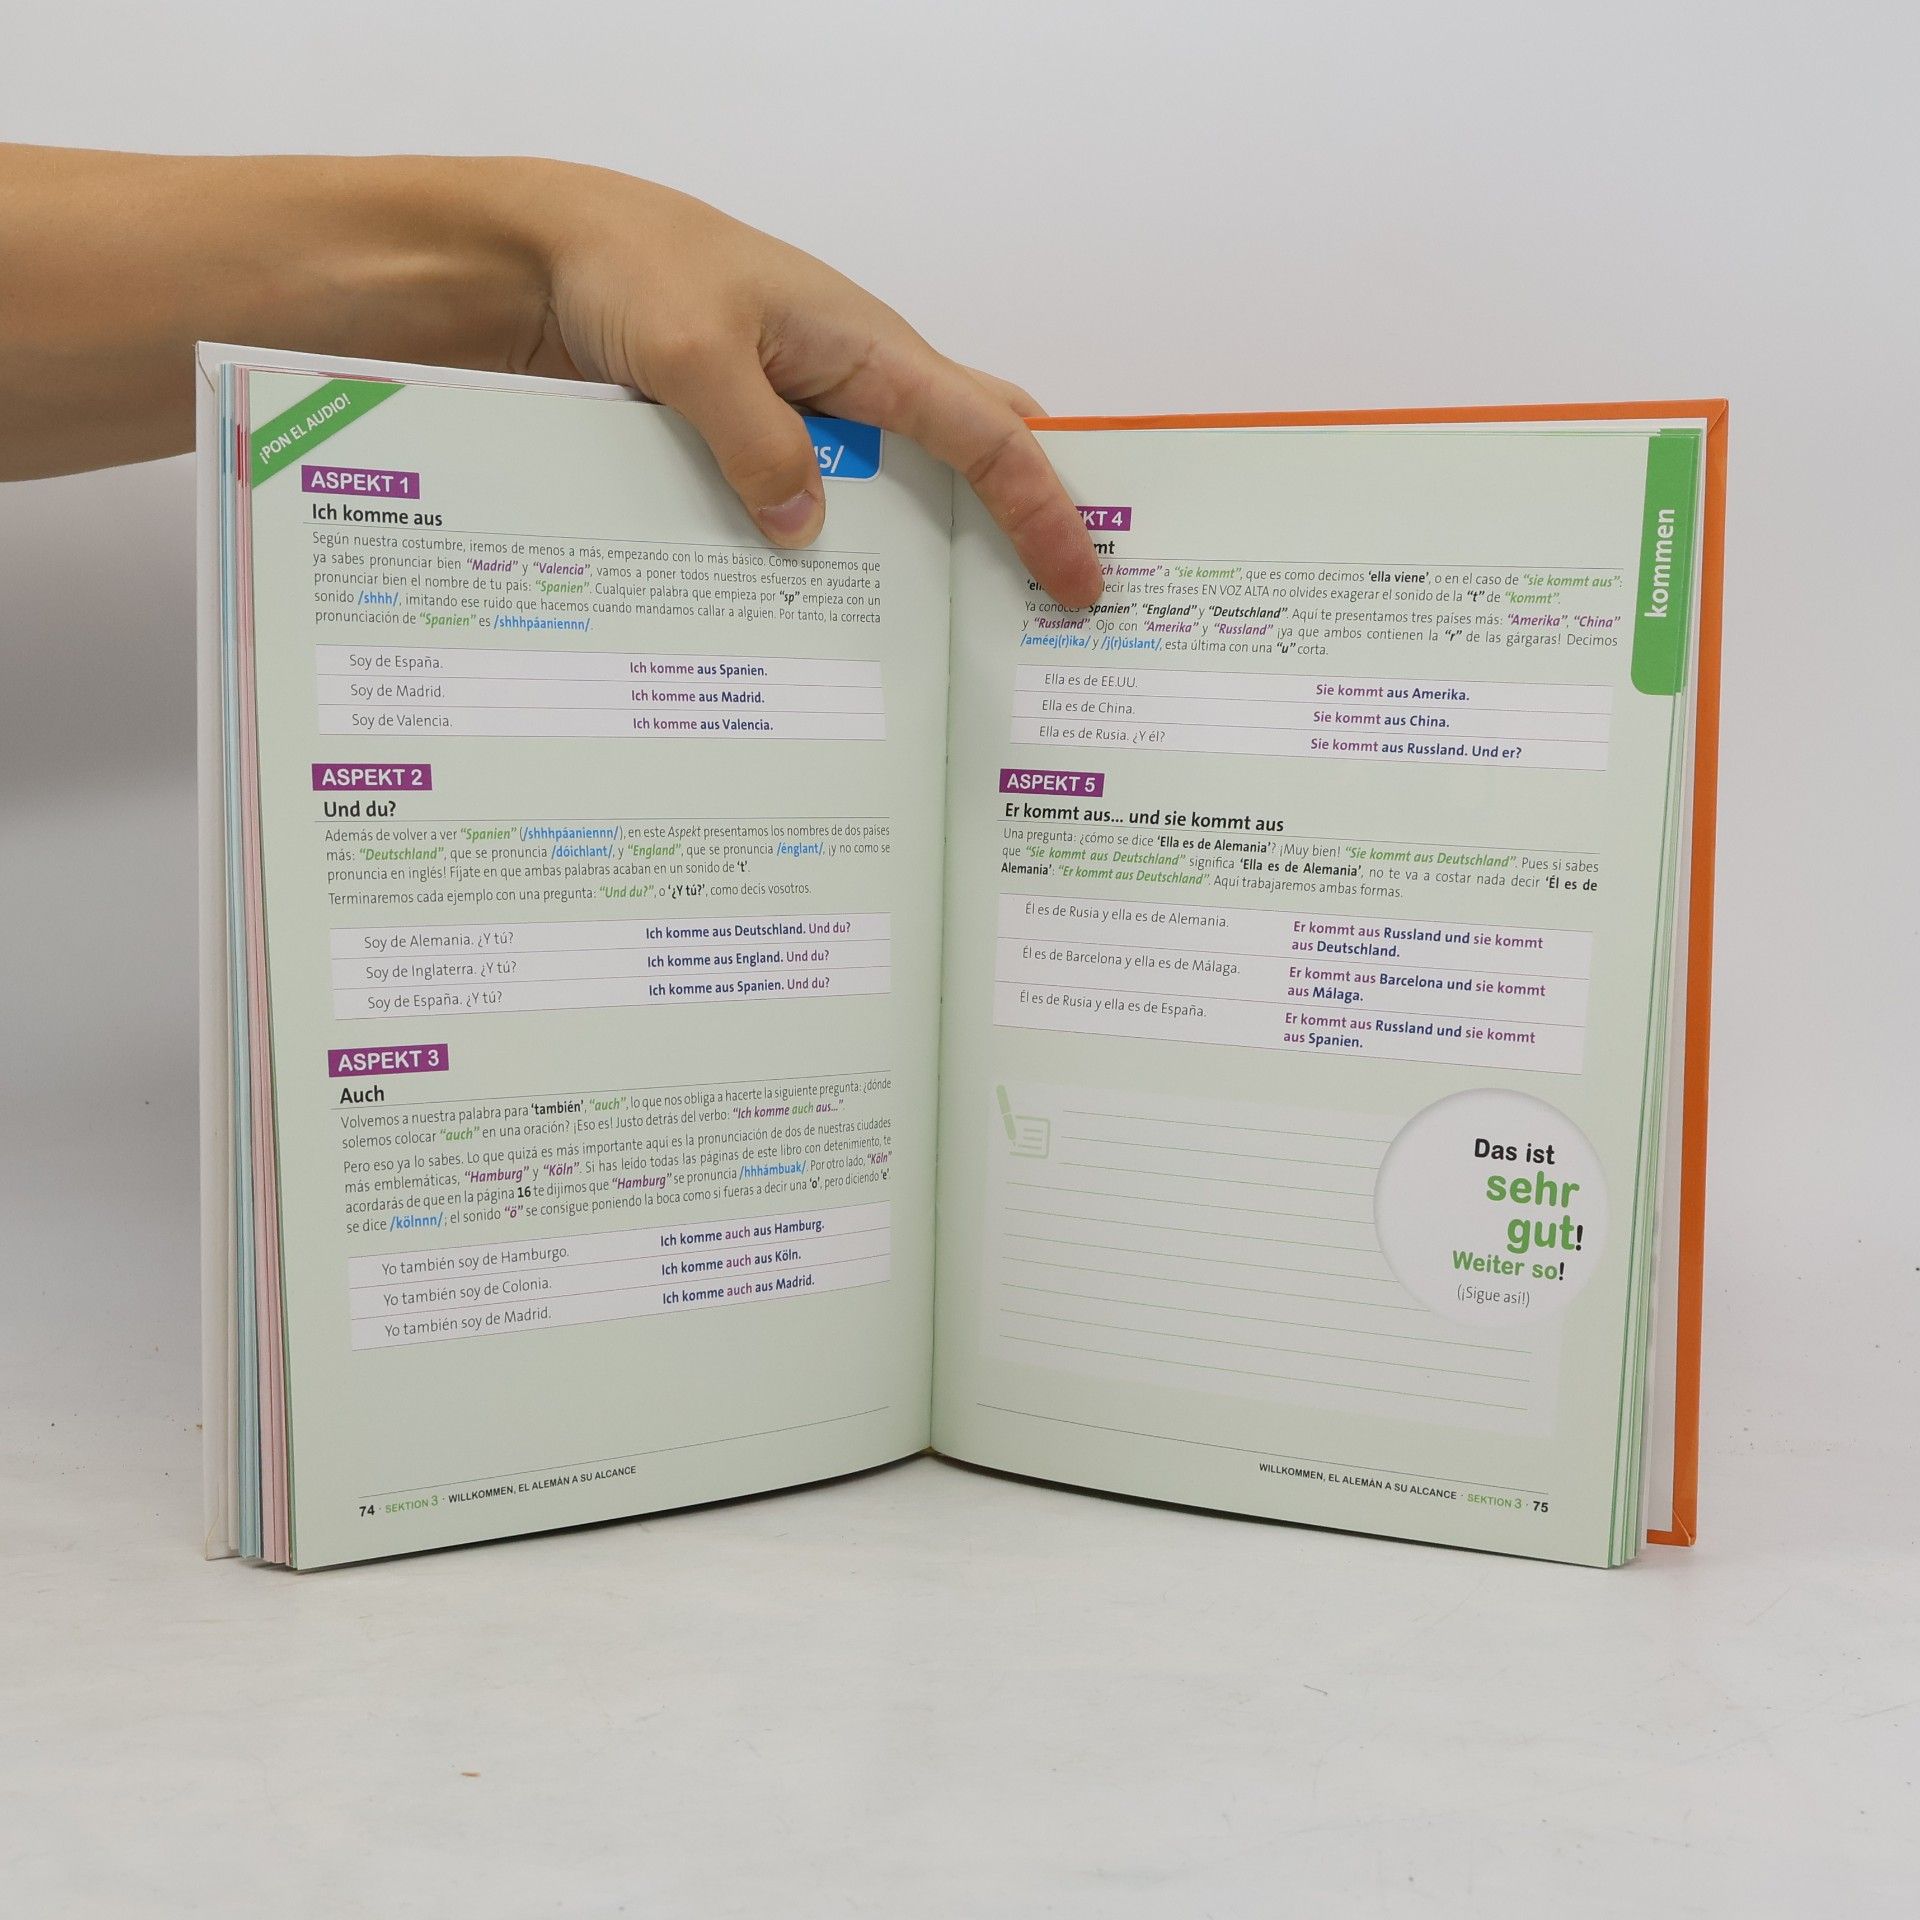 ¡PON EL AUDIO!
ASPEKT 1
Ich komme aus
Según nuestra costumbre, iremos de menos a más, empezando con lo más básico. Como suponemos que
ya sabes pronunciar bien “Madrid” y “Valencia”, vamos a poner todos nuestros esfuerzos en ayudarte a
pronunciar bien el nombre de tu país: “Spanien”. Cualquier palabra que empieza por “sp” empieza con un
sonido /shhh/, imitando ese ruido que hacemos cuando mandamos callar a alguien. Por tanto, la correcta
pronunciación de “Spanien” es /shhhpáaniennn/.
Soy de España. Ich komme aus Spanien.
Soy de Madrid. Ich komme aus Madrid.
Soy de Valencia. Ich komme aus Valencia.
ASPEKT 2
Und du?
Además de volver a ver “Spanien” (/shhhpáaniennn/), en este Aspekt presentamos los nombres de dos países
más: “Deutschland”, que se pronuncia /dóichlant/, y “England”, que se pronuncia /énglant/, ¡y no como se
pronuncia en inglés! Fíjate en que ambas palabras acaban en un sonido de ‘t’.
Terminaremos cada ejemplo con una pregunta: “Und du?”, o ‘¿Y tú?’, como decís vosotros.
Soy de Alemania. ¿Y tú? Ich komme aus Deutschland. Und du?
Soy de Inglaterra. ¿Y tú? Ich komme aus England. Und du?
Soy de España. ¿Y tú? Ich komme aus Spanien. Und du?
ASPEKT 3
Auch
Volvemos a nuestra palabra para ‘también’, “auch”, lo que nos obliga a hacerte la siguiente pregunta: ¿dónde
solemos colocar “auch” en una oración? ¡Eso es! Justo detrás del verbo: “Ich komme auch aus...”.
Pero eso ya lo sabes. Lo que quizá es más importante aquí es la pronunciación de dos de nuestras ciudades
más emblemáticas, “Hamburg” y “Köln”. Si has leído todas las páginas de este libro con detenimiento, te
acordarás de que en la página 16 te dijimos que “Hamburg” se pronuncia /hhhámbuak/. Por otro lado, “Köln”
se dice /kölnnn/; el sonido “ö” se consigue poniendo la boca como si fueras a decir una ‘o’, pero diciendo ‘e’.
Yo también soy de Hamburgo. Ich komme auch aus Hamburg.
Yo también soy de Colonia. Ich komme auch aus Köln.
Yo también soy de Madrid. Ich komme auch aus Madrid.
74 · SEKTION 3 · WILLKOMMEN, EL ALEMÁN A SU ALCANCE
kommen
KT 4
mt
ch komme” a “sie kommt”, que es como decimos ‘ella viene’, o en el caso de “sie kommt aus”:
decir las tres frases EN VOZ ALTA no olvides exagerar el sonido de la “t” de “kommt”.
Ya conoces “Spanien”, “England” y “Deutschland”. Aquí te presentamos tres países más: “Amerika”, “China”
y “Russland”. Ojo con “Amerika” y “Russland” ¡ya que ambos contienen la “r” de las gárgaras! Decimos
/améej(r)ika/ y /j(r)úslant/, esta última con una “u” corta.
Ella es de EE.UU. Sie kommt aus Amerika.
Ella es de China. Sie kommt aus China.
Ella es de Rusia. ¿Y él? Sie kommt aus Russland. Und er?
ASPEKT 5
Er kommt aus... und sie kommt aus
Una pregunta: ¿cómo se dice ‘Ella es de Alemania’? ¡Muy bien! “Sie kommt aus Deutschland”. Pues si sabes
que “Sie kommt aus Deutschland” significa ‘Ella es de Alemania’, no te va a costar nada decir ‘Él es de
Alemania’: “Er kommt aus Deutschland”. Aquí trabajaremos ambas formas.
Él es de Rusia y ella es de Alemania. Er kommt aus Russland und sie kommt
aus Deutschland.
Él es de Barcelona y ella es de Málaga. Er kommt aus Barcelona und sie kommt
aus Málaga.
Él es de Rusia y ella es de España. Er kommt aus Russland und sie kommt
aus Spanien.
Das ist
sehr
gut!
Weiter so!
(¡Sigue así!)
WILLKOMMEN, EL ALEMÁN A SU ALCANCE · SEKTION 3 · 75